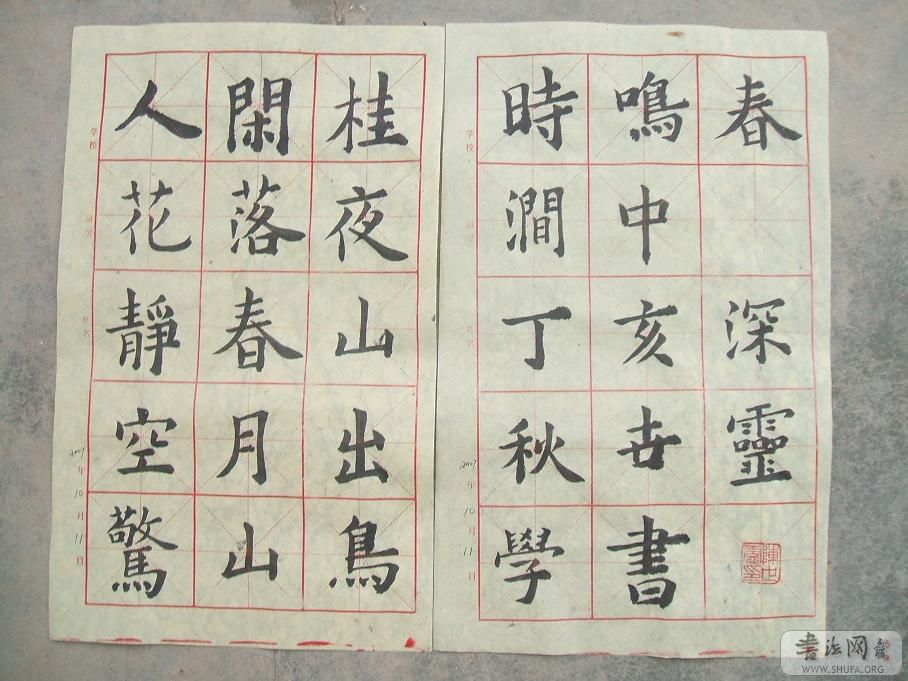 人閑桂
花落夜
靜春山
空月出
驚山鳥
学校
姓名
2007年10月11日
時鳴春
澗中
丁亥深
秋卋靈
學書
学校
姓名
2007年10月11日
书法网
WWW.SHUFA.ORG